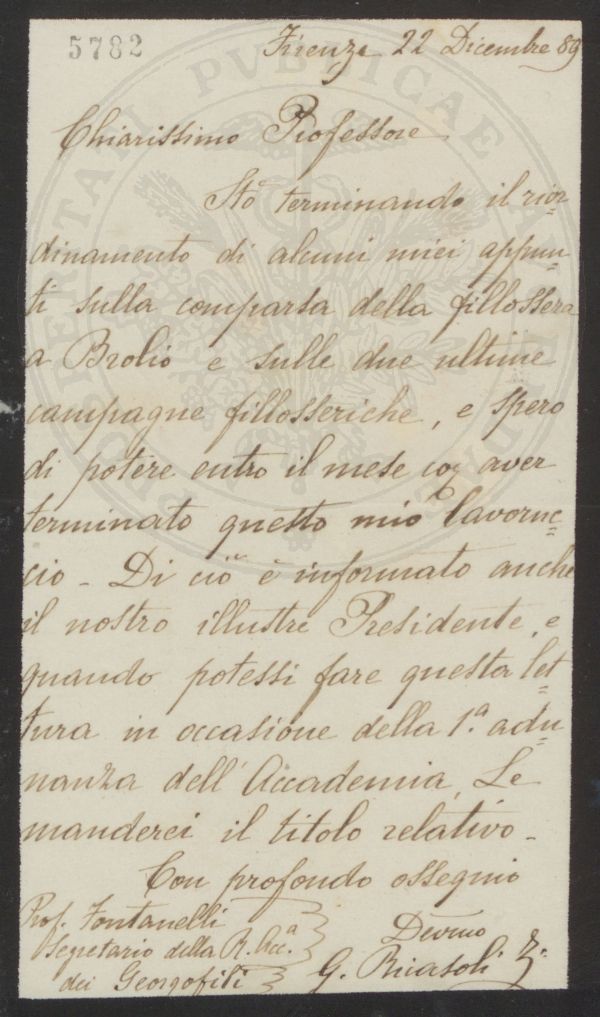 5782
Firenze 22 Dicembre 89
Chiarissimo Professore
Sto terminando il rior=
dinamento di alcuni miei appun=
ti sulla comparsa della fillossera
a Brolio e sulle due ultime
campagne fillosseriche, e spero
di potere entro il mese aver
terminato questo mio lavoruc=
cio - Di ciò è informato anche
il nostro illustre Presidente, e
quando potessi fare questa let=
tura in occasione della 1.a adu=
nanza dell'Accademia, Le
manderei il titolo relativo -
Con profondo ossequio
Prof. Fontanelli
Segretario della R. Acc.a
dei Georgofili
Devmo
G. Ricasoli